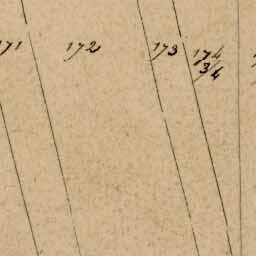 171 172 173 174
3/4